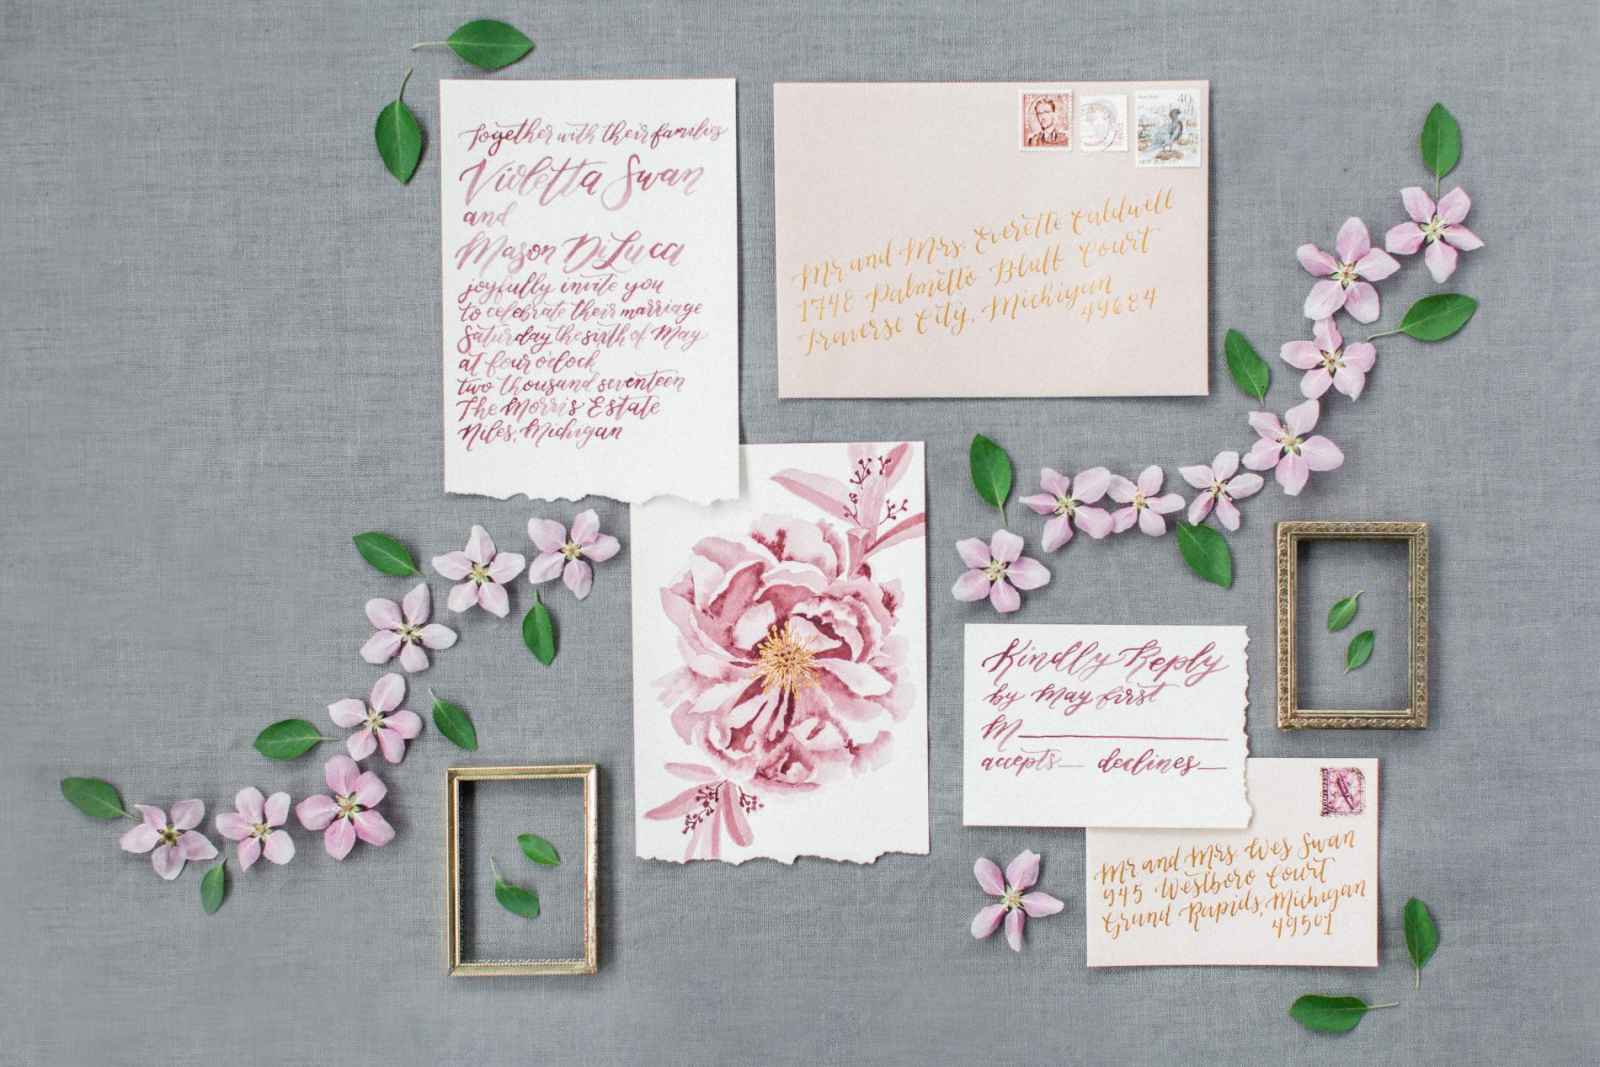 Together with their families
Violetta Swan
and
Mason DiLuca
joyfully invite you
to celebrate their marriage
Saturday the sixth of May
at four o'clock
two thousand seventeen
The Morris Estate
Niles, Michigan
40
Mr and Mrs. Everette Caldwell
1748 Palmetto Bluff Court
Traverse City, Michigan
49684
Kindly Reply
by May first
M
accepts declines
Mr and Mrs. Wes Swan
945 Westboro Court
Grand Rapids, Michigan
49501